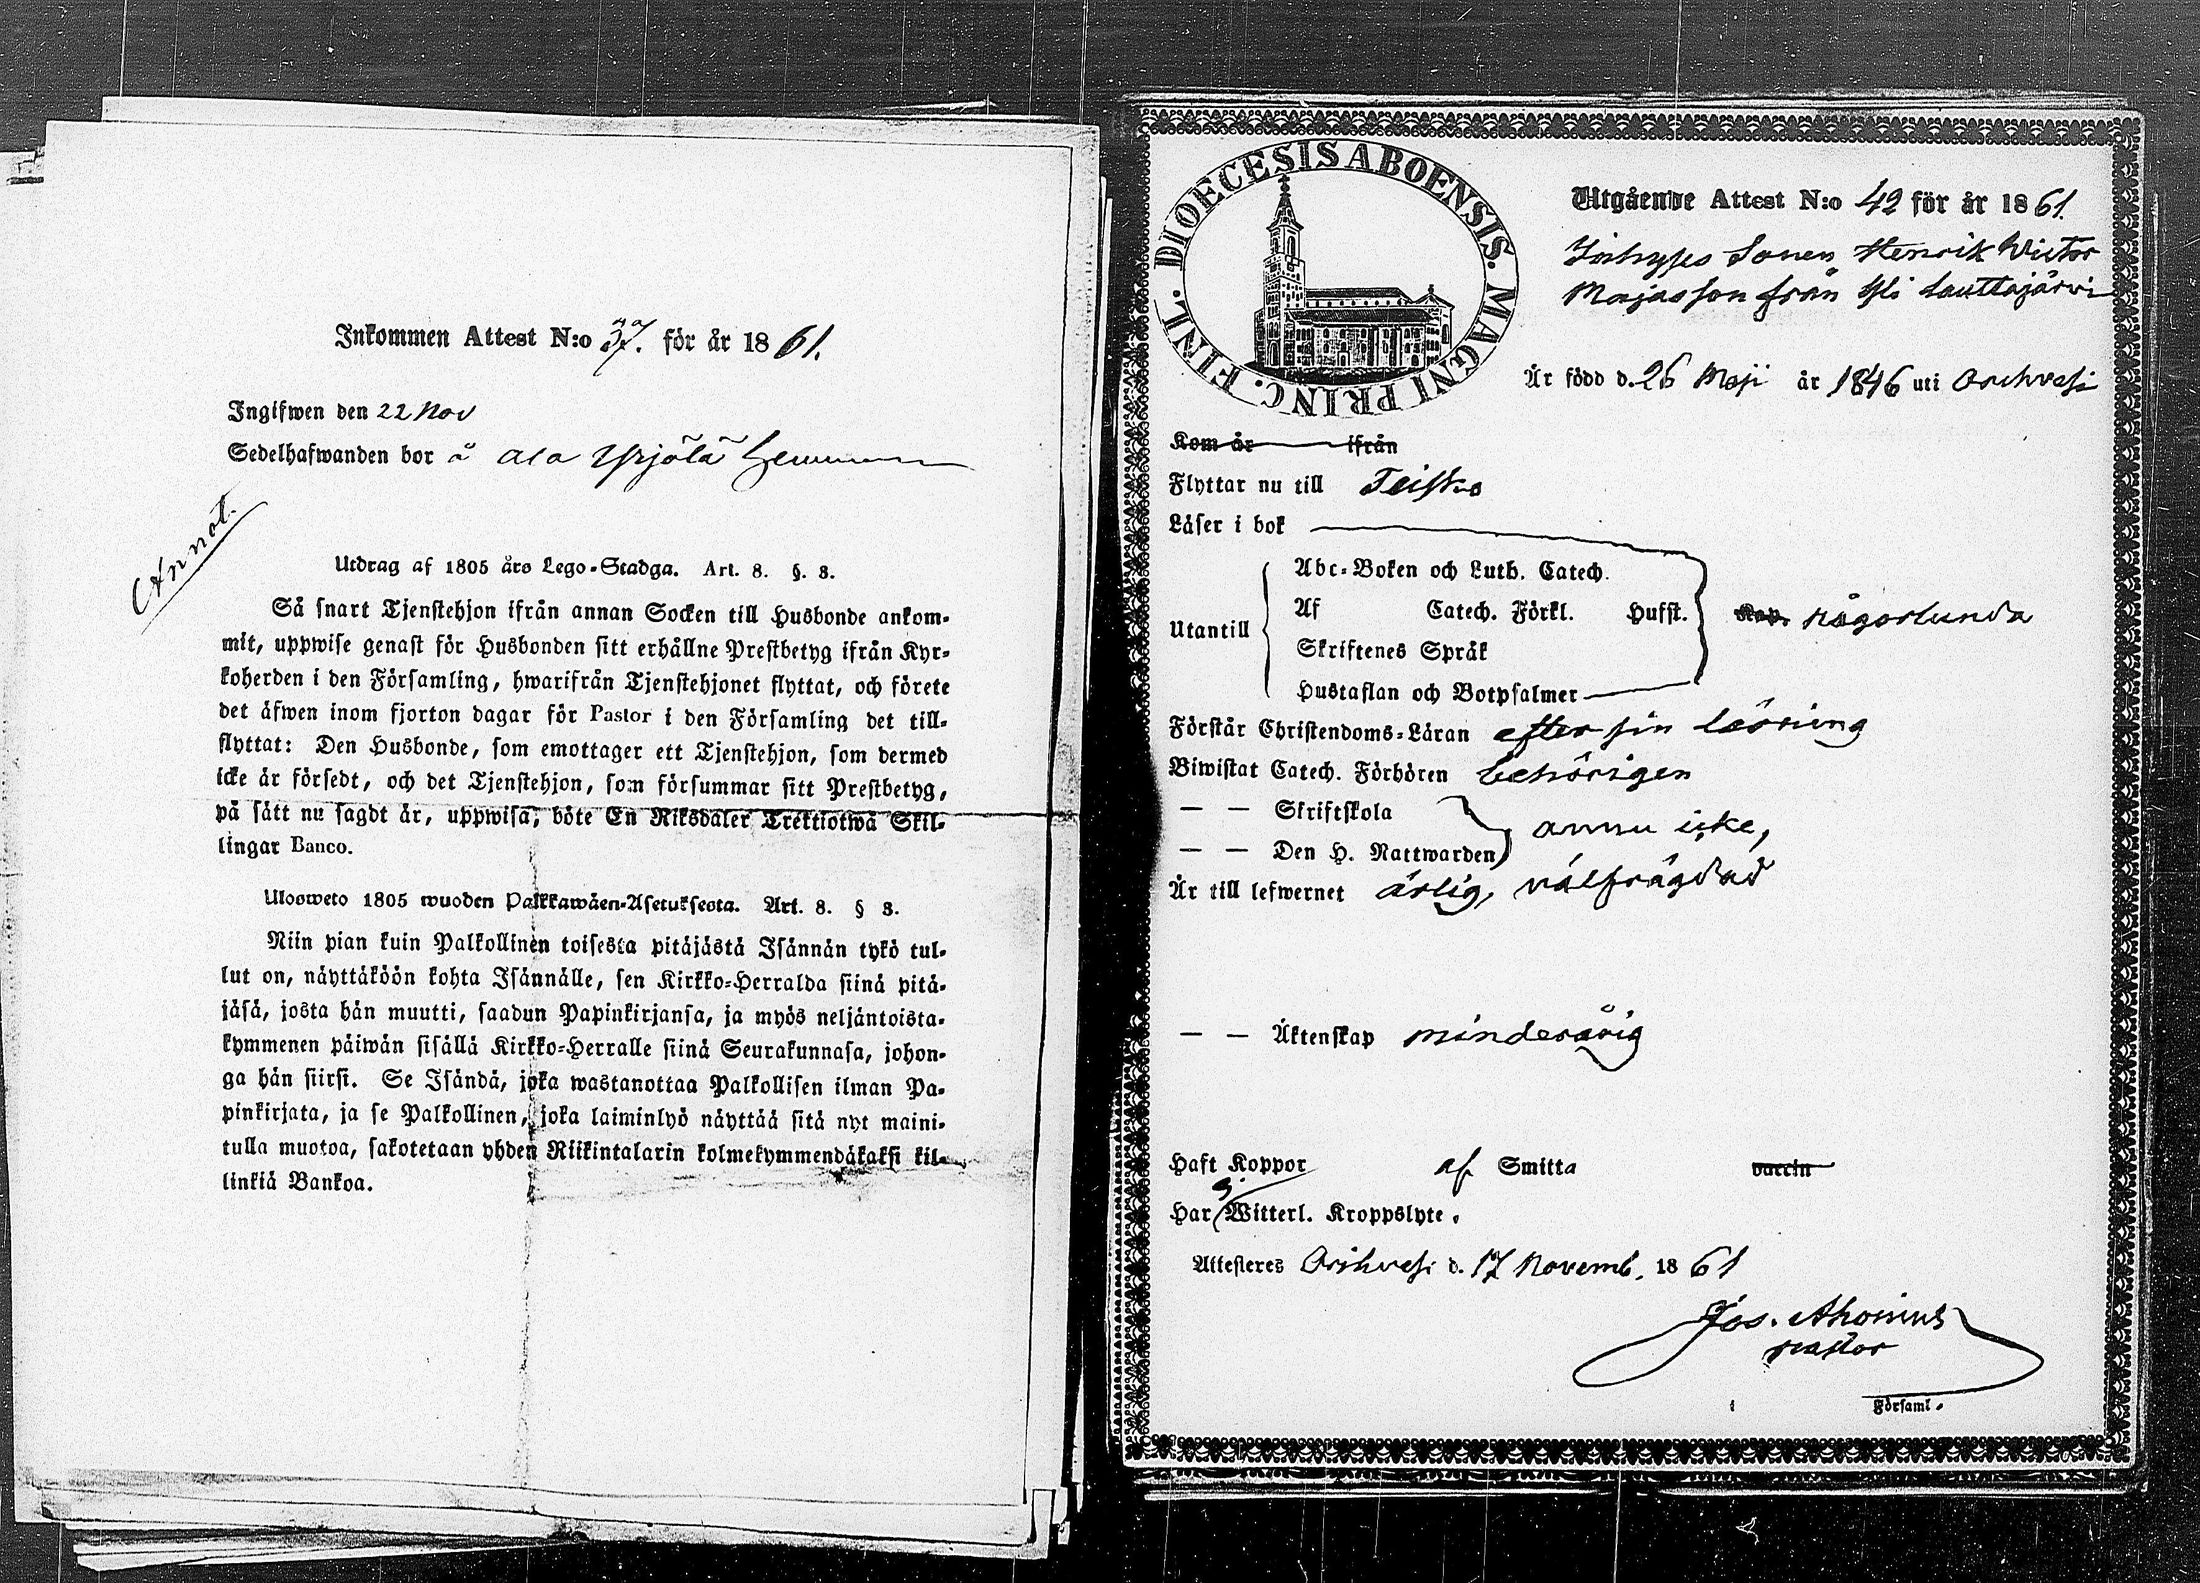 Inkommen Attest N:o 37. för år 1861.
Ingifwen den 22 Nov
Sedelhafwanden bor å Ala Yrjölä hemman
Annot.
Utdrag af 1805 års Lego-Stadga. Art. 8. §. 3.
Så snart Tjenstehjon ifrån annan Socken till Husbonde ankom-
mit, uppwise genast för Husbonden sitt erhållne Prestbetyg ifrån Kyr-
koherden i den Församling, hwarifrån Tjenstehjonet flyttat, och förete
det äfwen inom fjorton dagar för Pastor i den Församling det till-
flyttat: Den Husbonde, som emottager ett Tjenstehjon, som dermed
icke är försedt, och det Tjenstehjon, som försummar sitt Prestbetyg,
på sätt nu sagdt är, uppwisa, böte En Riksdaler Trettiotwå Skil-
lingar Banco.
Ulosweto 1805 wuoden Palkkawäen-Asetuksesta. Art. 8. § 3.
Niin pian kuin Palkollinen toisesta pitäjästä Isännän tykö tul-
lut on, näyttäköön kohta Isännälle, sen Kirkko-Herralda siinä pitä-
jäsä, josta hän muutti, saadun Papinkirjansa, ja myös neljäntoista-
kymmenen päiwän sisällä Kirkko-Herralle siinä Seurakunnasa, johon-
ga hän siirsi. Se Isändä, joka wastanottaa Palkollisen ilman Pa-
pinkirjata, ja se Palkollinen, joka laiminlyö näyttää sitä nyt maini-
tulla muotoa, sakotetaan yhden Riikintalarin kolmekymmendäkaksi kil-
linkiä Bankoa.
DIOECESIS ABOENSIS. MAGNI PRINC. FINL.
Utgående Attest N:o 42 för år 1861.
Inhyses Sonen Henrik Victor
Majasson från Yli Lauttajärvi
Är född d. 26 Maji år 1846 uti Orihvesi
Kom år ifrån
Flyttar nu till Teisko
Läser i bok
Utantill
Abc-Boken och Luth. Catech.
Af Catech. Förkl. Hufst. Kap. någorlunda
Skriftenes Språk
Hustaflan och Botpsalmer
Förstår Christendoms-Läran efter sin läsning
Biwistat Catech. Förhören behörigen
— — Skriftskola
— — Den H. Nattwarden annu icke,
Är till lefwernet ärlig, välfrägdad
— — Äktenskap minderårig
Haft Koppor af Smitta vaccin
Har ej Witterl. Kroppslyte.
Attesteres Orihvesi d. 17 Novemb. 1861
Jos. Ahonius
pastor
i Församl.